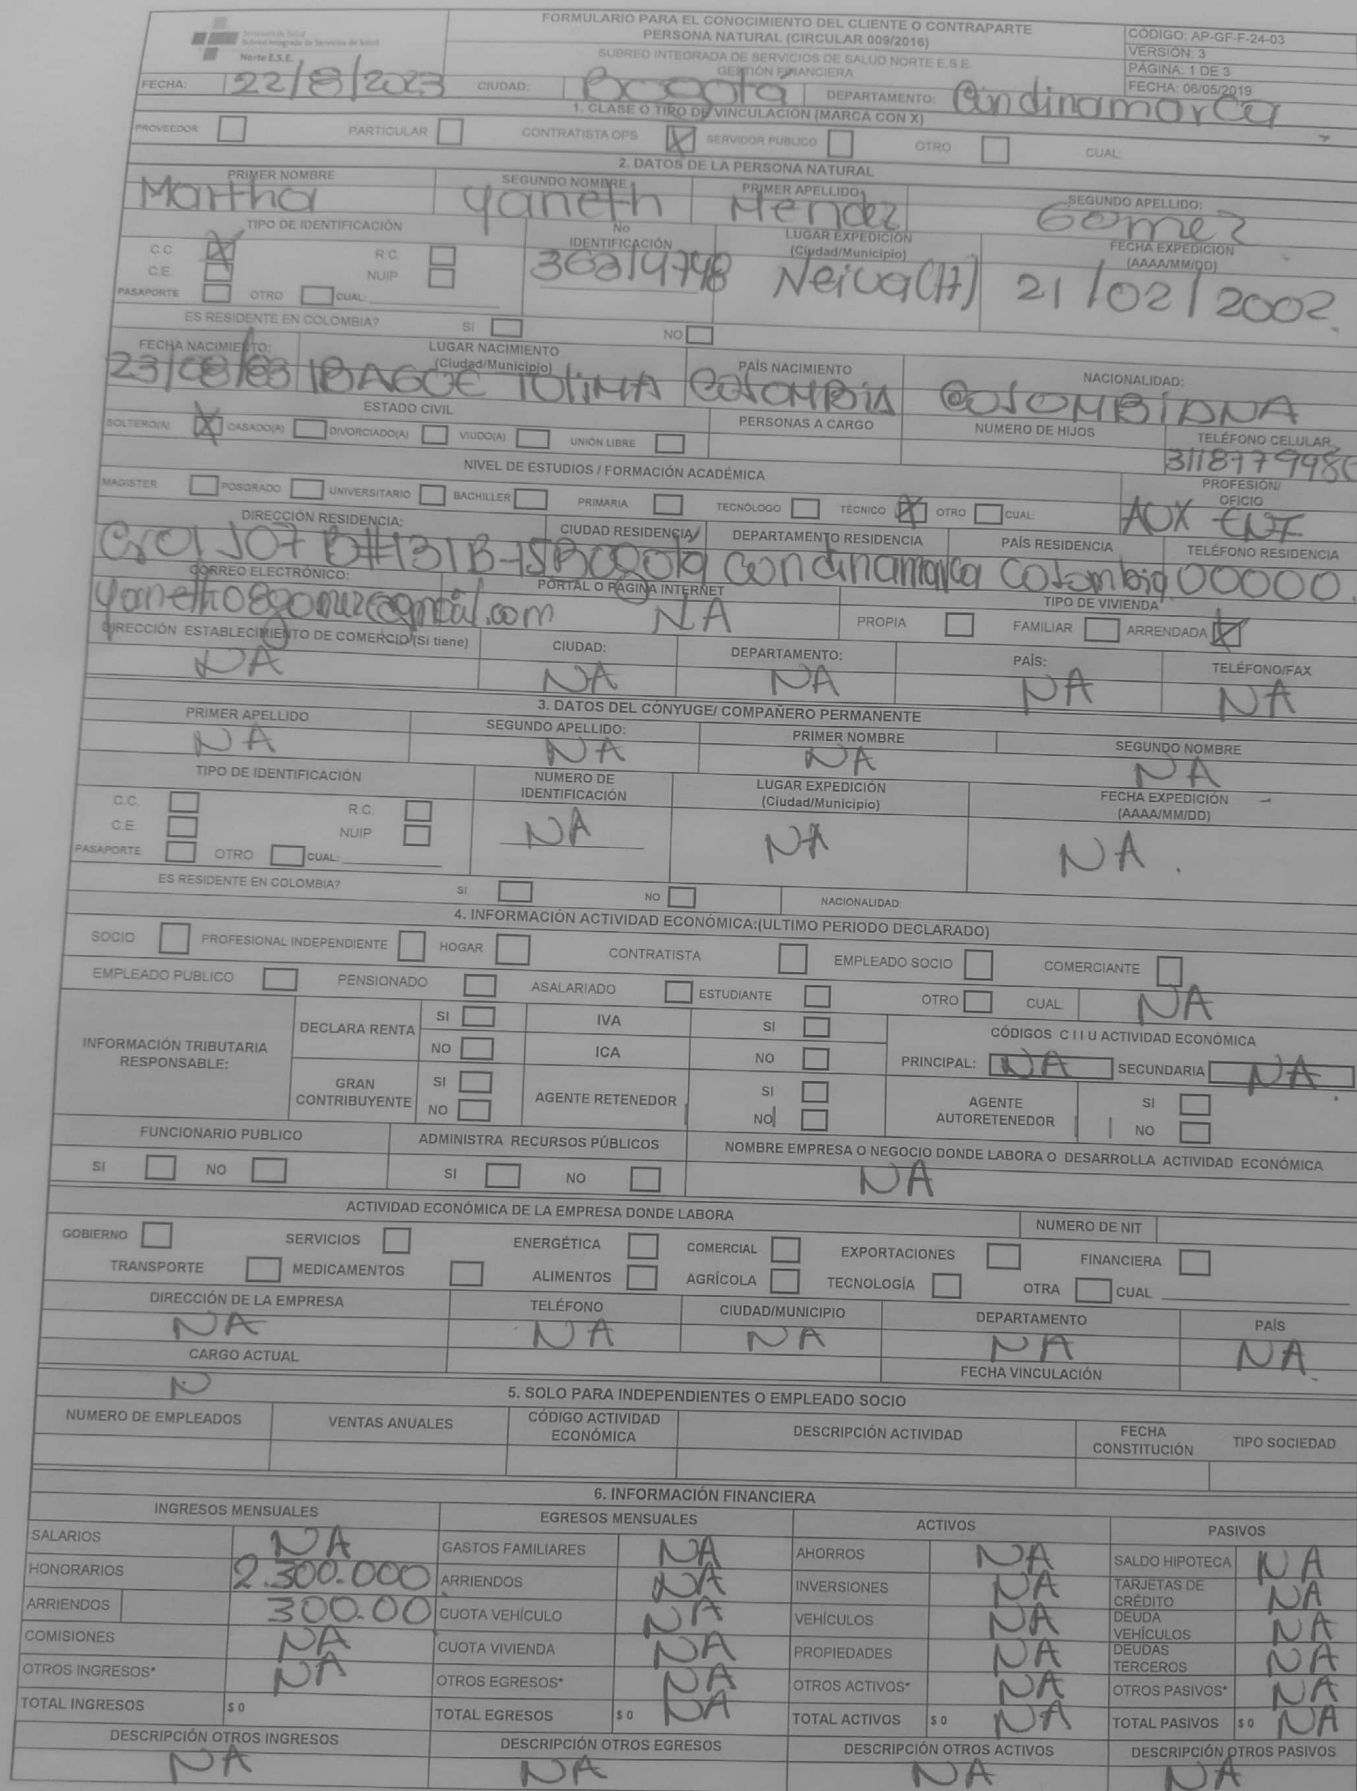 Secretaría de Salud
Subred Integrada de Servicios de Salud
Norte E.S.E.
FORMULARIO PARA EL CONOCIMIENTO DEL CLIENTE O CONTRAPARTE
PERSONA NATURAL (CIRCULAR 009/2016)
SUBRED INTEGRADA DE SERVICIOS DE SALUD NORTE E.S.E.
GESTIÓN FINANCIERA
CÓDIGO: AP-GF-F-24-03
VERSIÓN: 3
PÁGINA: 1 DE 3
FECHA: 06/05/2019
FECHA: 22/8/2023 CIUDAD: Bogotá DEPARTAMENTO: Cundinamarca
1. CLASE O TIPO DE VINCULACIÓN (MARCA CON X)
PROVEEDOR PARTICULAR CONTRATISTA OPS X SERVIDOR PUBLICO OTRO CUAL:
2. DATOS DE LA PERSONA NATURAL
PRIMER NOMBRE SEGUNDO NOMBRE PRIMER APELLIDO: SEGUNDO APELLIDO:
Martha Yaneth Mendez Gomez
TIPO DE IDENTIFICACIÓN No IDENTIFICACIÓN LUGAR EXPEDICIÓN (Ciudad/Municipio) FECHA EXPEDICIÓN (AAAA/MM/DD)
C.C. X R.C. 36314748 Neiva(H) 21/02/2002.
C.E. NUIP
PASAPORTE OTRO CUAL:
ES RESIDENTE EN COLOMBIA? SI NO
FECHA NACIMIENTO: LUGAR NACIMIENTO (Ciudad/Municipio) PAÍS NACIMIENTO NACIONALIDAD:
23/08/83 IBAGUE TOLIMA COLOMBIA COLOMBIANA
ESTADO CIVIL PERSONAS A CARGO NUMERO DE HIJOS TELÉFONO CELULAR
SOLTERO(A) X CASADO(A) DIVORCIADO(A) VIUDO(A) UNIÓN LIBRE 311877998
NIVEL DE ESTUDIOS / FORMACIÓN ACADÉMICA PROFESIÓN/ OFICIO
MAGISTER POSGRADO UNIVERSITARIO BACHILLER PRIMARIA TECNÓLOGO TÉCNICO X OTRO CUAL: AUX ENF
DIRECCIÓN RESIDENCIA: CIUDAD RESIDENCIA DEPARTAMENTO RESIDENCIA PAÍS RESIDENCIA TELÉFONO RESIDENCIA
107 B#131B-15 Bogota Cundinamarca Colombia 00000.
CORREO ELECTRÓNICO: PORTAL O PAGINA INTERNET TIPO DE VIVIENDA
NA PROPIA FAMILIAR ARRENDADA X
DIRECCIÓN ESTABLECIMIENTO DE COMERCIO (Si tiene) CIUDAD: DEPARTAMENTO: PAÍS: TELÉFONO/FAX
NA NA NA NA NA
3. DATOS DEL CÓNYUGE/ COMPAÑERO PERMANENTE
PRIMER APELLIDO SEGUNDO APELLIDO: PRIMER NOMBRE SEGUNDO NOMBRE
NA NA NA NA
TIPO DE IDENTIFICACIÓN NUMERO DE IDENTIFICACIÓN LUGAR EXPEDICIÓN (Ciudad/Municipio) FECHA EXPEDICIÓN (AAAA/MM/DD)
C.C. R.C.
C.E. NUIP NA NA NA.
PASAPORTE OTRO CUAL:
ES RESIDENTE EN COLOMBIA? SI NO NACIONALIDAD:
4. INFORMACIÓN ACTIVIDAD ECONÓMICA:(ULTIMO PERIODO DECLARADO)
SOCIO PROFESIONAL INDEPENDIENTE HOGAR CONTRATISTA EMPLEADO SOCIO COMERCIANTE
EMPLEADO PUBLICO PENSIONADO ASALARIADO ESTUDIANTE OTRO CUAL: NA
INFORMACIÓN TRIBUTARIA RESPONSABLE: DECLARA RENTA SI NO IVA SI ICA NO CÓDIGOS C I I U ACTIVIDAD ECONÓMICA
PRINCIPAL: NA SECUNDARIA NA.
GRAN CONTRIBUYENTE SI NO AGENTE RETENEDOR SI NO AGENTE AUTORETENEDOR SI NO
FUNCIONARIO PUBLICO ADMINISTRA RECURSOS PÚBLICOS NOMBRE EMPRESA O NEGOCIO DONDE LABORA O DESARROLLA ACTIVIDAD ECONÓMICA
SI NO SI NO NA
ACTIVIDAD ECONÓMICA DE LA EMPRESA DONDE LABORA NUMERO DE NIT
GOBIERNO SERVICIOS ENERGÉTICA COMERCIAL EXPORTACIONES FINANCIERA
TRANSPORTE MEDICAMENTOS ALIMENTOS AGRÍCOLA TECNOLOGÍA OTRA CUAL
DIRECCIÓN DE LA EMPRESA TELÉFONO CIUDAD/MUNICIPIO DEPARTAMENTO PAÍS
NA NA NA NA NA.
CARGO ACTUAL FECHA VINCULACIÓN
N
5. SOLO PARA INDEPENDIENTES O EMPLEADO SOCIO
NUMERO DE EMPLEADOS VENTAS ANUALES CÓDIGO ACTIVIDAD ECONÓMICA DESCRIPCIÓN ACTIVIDAD FECHA CONSTITUCIÓN TIPO SOCIEDAD
6. INFORMACIÓN FINANCIERA
INGRESOS MENSUALES EGRESOS MENSUALES ACTIVOS PASIVOS
SALARIOS NA GASTOS FAMILIARES NA AHORROS NA SALDO HIPOTECA NA
HONORARIOS 2.300.000 ARRIENDOS NA INVERSIONES NA TARJETAS DE CRÉDITO NA
ARRIENDOS 300.00 CUOTA VEHÍCULO NA VEHÍCULOS NA DEUDA VEHÍCULOS NA
COMISIONES NA CUOTA VIVIENDA NA PROPIEDADES NA DEUDAS TERCEROS NA
OTROS INGRESOS* NA OTROS EGRESOS* NA OTROS ACTIVOS* NA OTROS PASIVOS* NA
TOTAL INGRESOS $ 0 TOTAL EGRESOS $ 0 NA TOTAL ACTIVOS $ 0 NA TOTAL PASIVOS $ 0 NA
DESCRIPCIÓN OTROS INGRESOS DESCRIPCIÓN OTROS EGRESOS DESCRIPCIÓN OTROS ACTIVOS DESCRIPCIÓN OTROS PASIVOS
NA NA NA NA